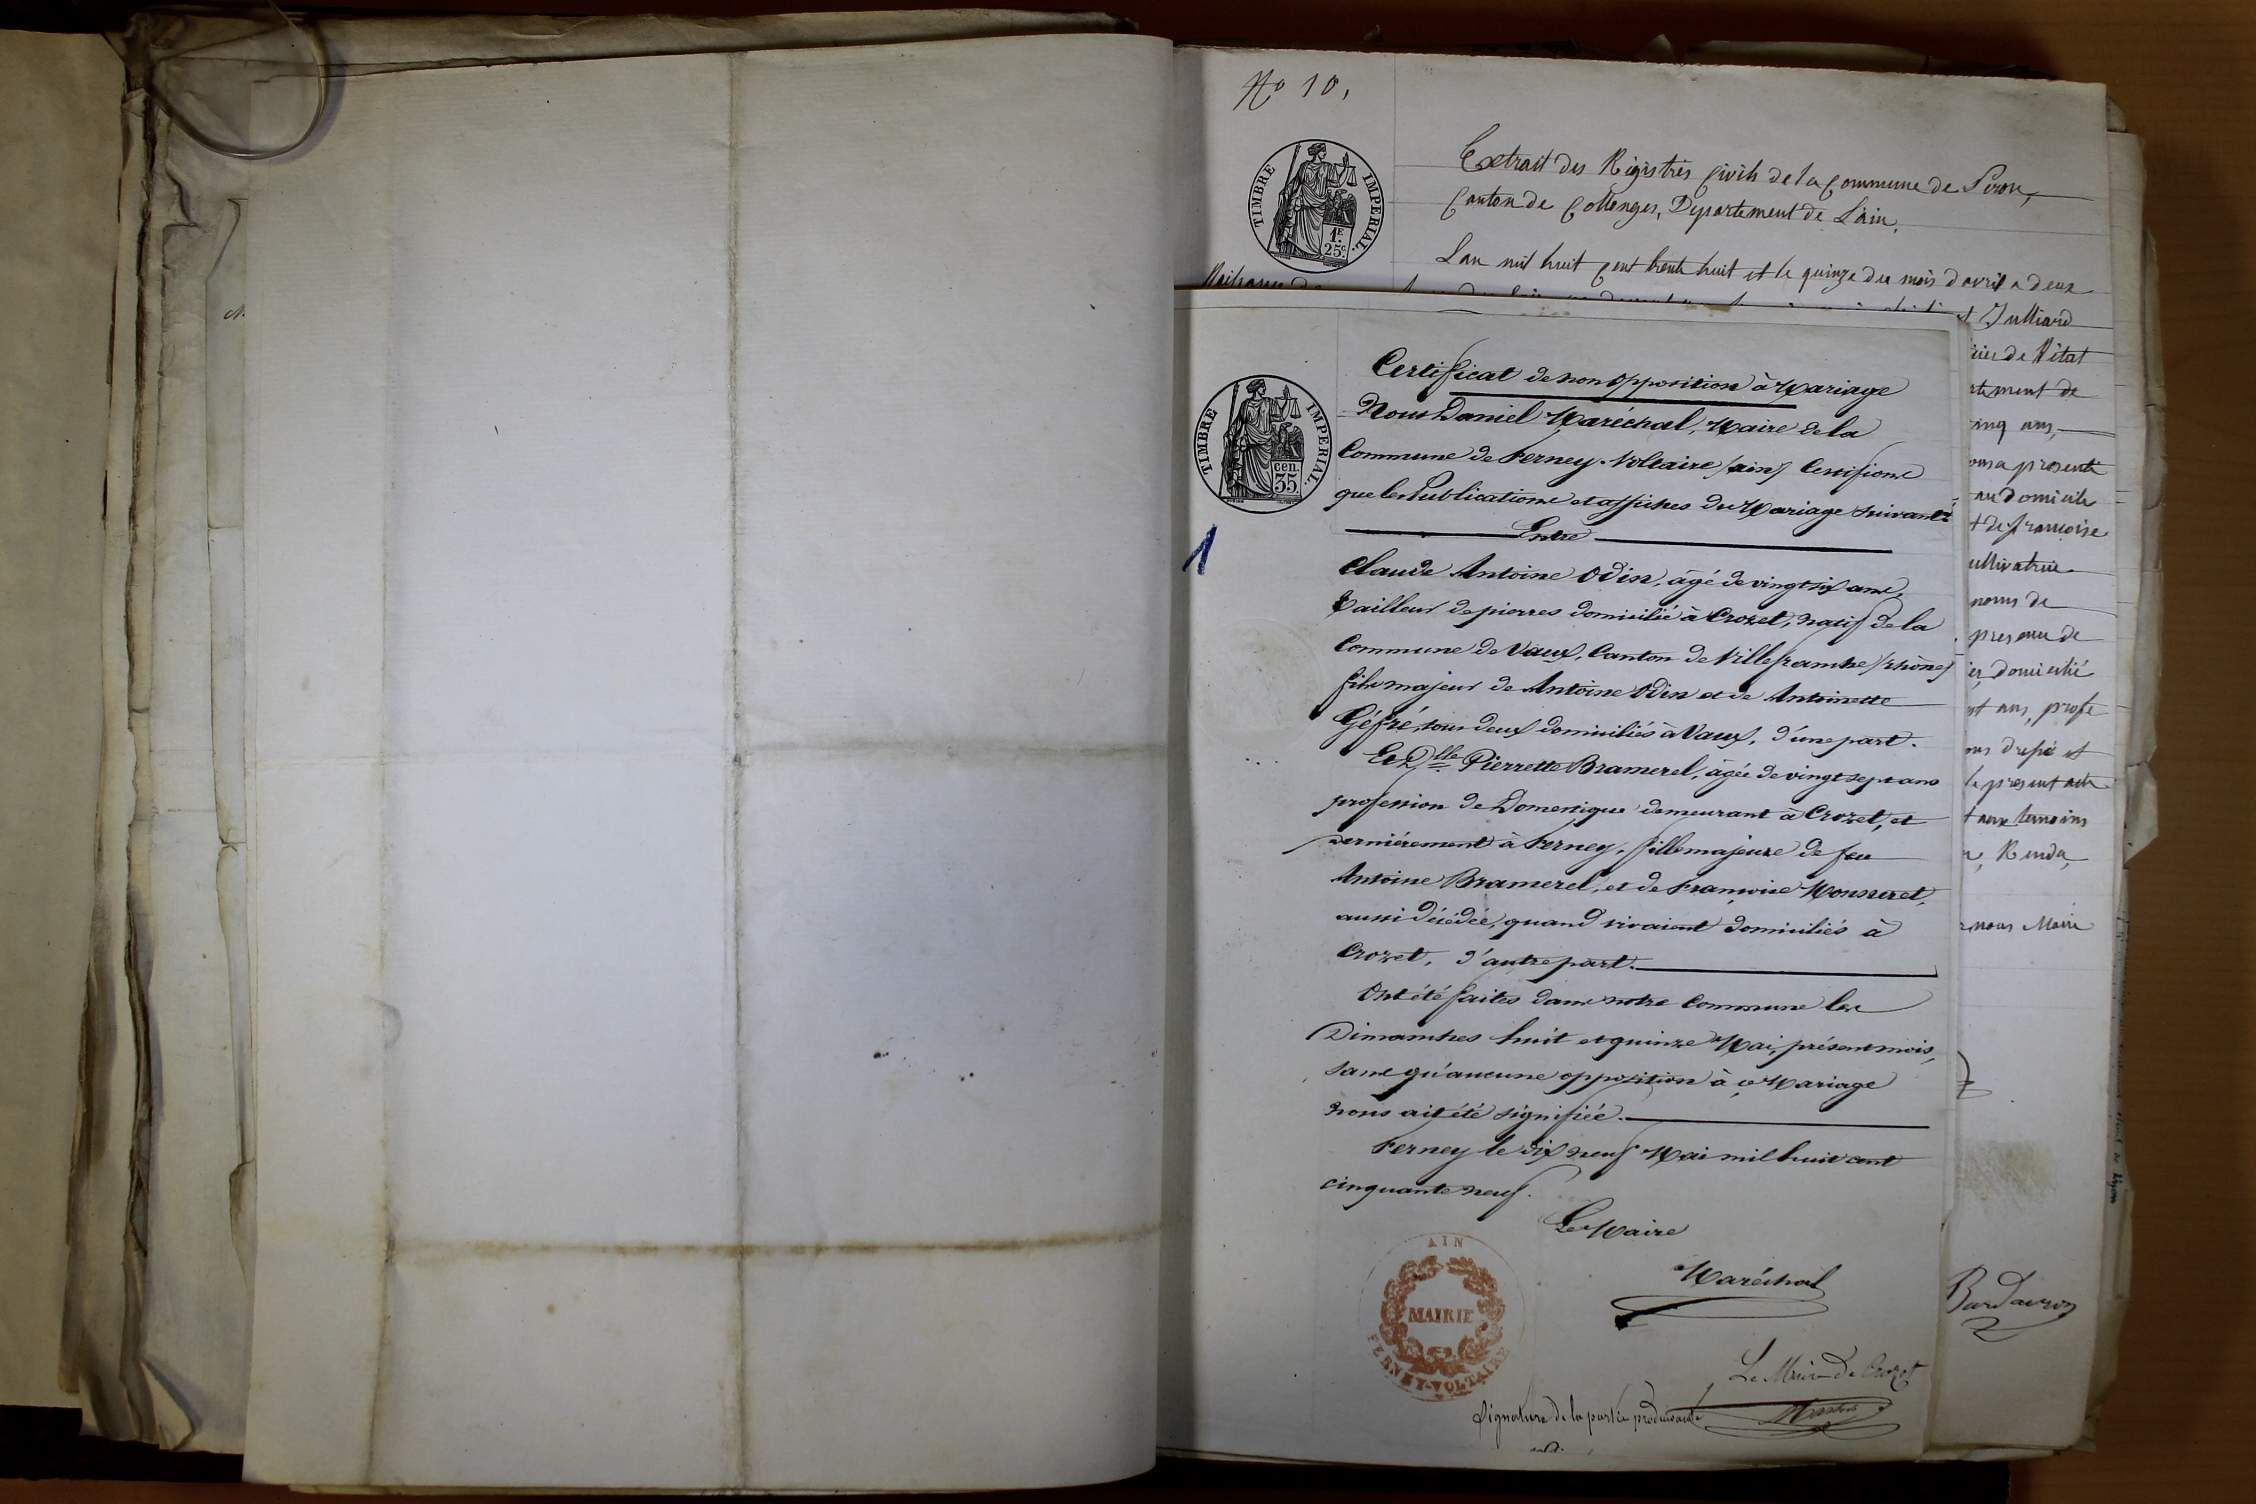 No 10,
TIMBRE IMPERIAL.
1F
25c
Extrait des Régistres Civils de la Commune de Péron,
Canton de Collonges, Département de L'ain,
L'an mil huit cent trente huit et le quinze du mois d'avril a deux
Julliard
de l'état
de
cinq ans,
présenté
au domicile
et de françoise
cultivatrice
noms de
presence de
domicilié
ans, profe
le présent acte
aux temoins
nous Maire
Bardavron
TIMBRE IMPERIAL.
cen.
35
1
Certificat de non Opposition à Mariage
Nous Daniel Maréchal, Maire de la
Commune de Ferney-Voltaire (ain) Certifions
que les Publications et affiches du Mariage suivants
Entre
Claude Antoine Odin, âgé de vingt six ans,
tailleur de pierres domicilié à Crozet, natif de la
Commune de Vaux, Canton de Villefranche (rhône)
fils majeur de Antoine Odin et de Antoinette
Géfré, tous deux domiciliés à Vaux, d'une part.
Et Dlle Pierrette Bramerel, âgée de vingt sept ans
profession de Domestique demeurant à Crozet, et
dernièrement à Ferney, fille majeure de feu
Antoine Bramerel, et de Françoise Mousseret,
aussi décédée, quand vivaient domiciliés à
Crozet, d'autre part.
Ont été faites dans notre Commune les
Dimanches huit et quinze Mai, présent mois,
sans qu'aucune opposition à ce Mariage
nous ait été signifiée.
Ferney le dix neuf Mai mil huit cent
cinquante neuf.
Le Maire
Maréchal
AIN
MAIRIE
FERNEY-VOLTAIRE
Le Maire De Crozet
Signature de la partie produisante